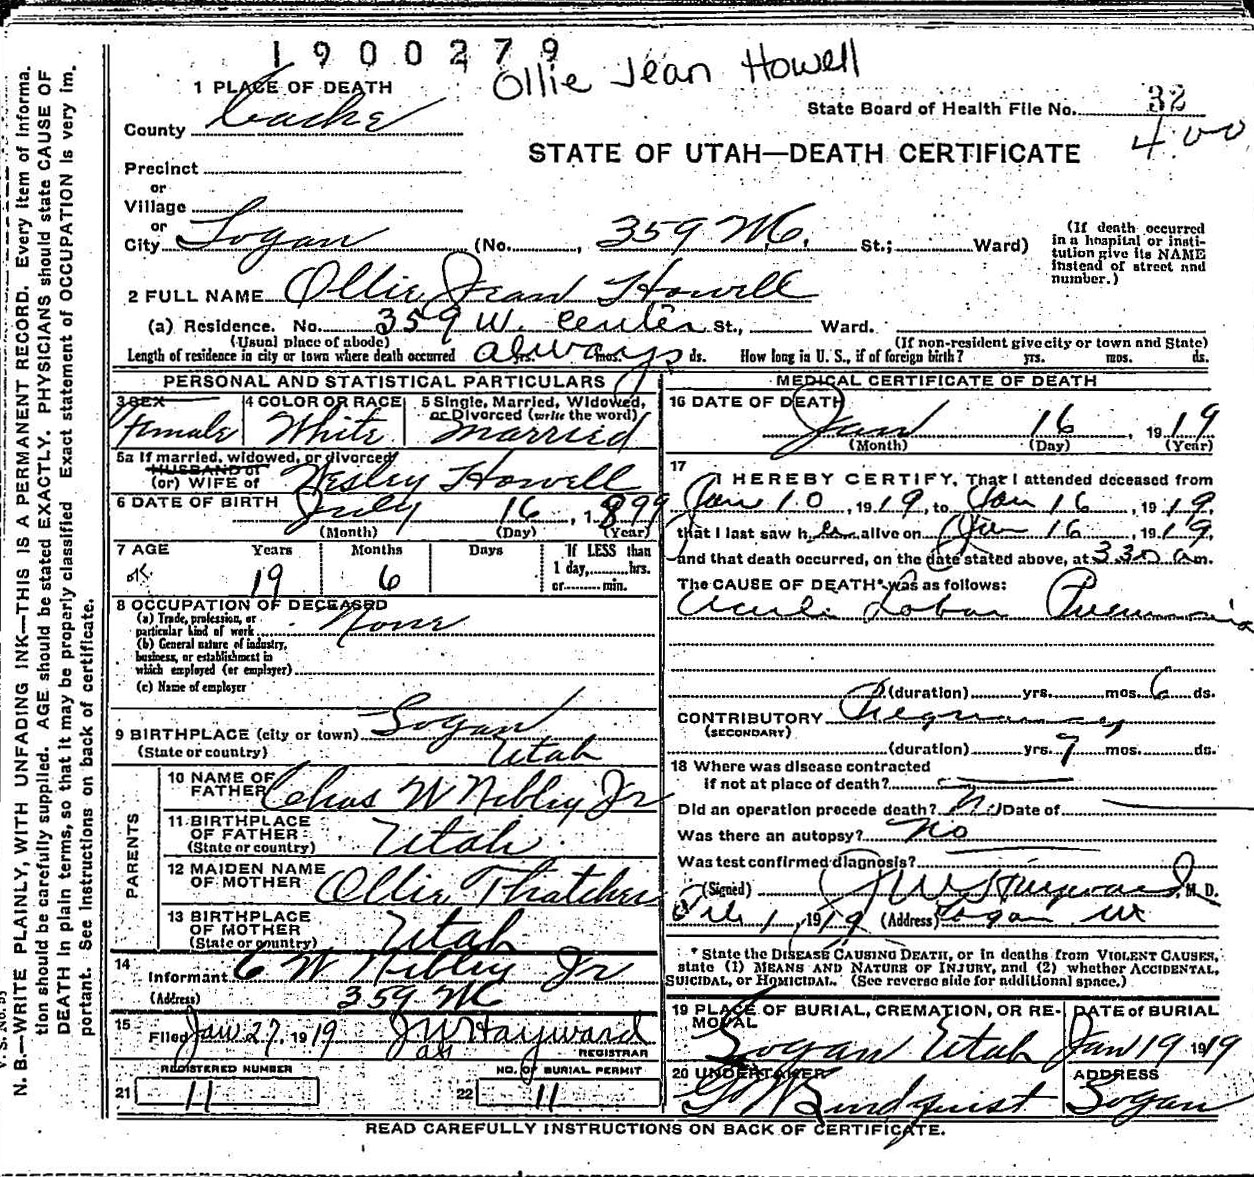 1900279
Ollie Jean Howell
1 PLACE OF DEATH
State Board of Health File No. 32
County Cache
4.00
STATE OF UTAH—DEATH CERTIFICATE
Precinct
or
Village
or
City Logan (No. , 359 W.C. St.; Ward)
(If death occurred in a hospital or insti-
tution give its NAME
instead of street and
number.)
2 FULL NAME Ollie Jean Howell
(a) Residence. No. 359 W. Center St., Ward.
(Usual place of abode) (If non-resident give city or town and State)
Length of residence in city or town where death occurred always yrs. mos. ds. How long in U. S., if of foreign birth? yrs. mos. ds.
PERSONAL AND STATISTICAL PARTICULARS
3 SEX 4 COLOR OR RACE 5 Single, Married, Widowed,
or Divorced (write the word)
Female White Married
5a If married, widowed, or divorced
HUSBAND of
(or) WIFE of Wesley Howell
6 DATE OF BIRTH July 16, 1899
(Month) (Day) (Year)
7 AGE Years Months Days If LESS than
1 day, hrs.
or min.
OK 19 6
8 OCCUPATION OF DECEASED
(a) Trade, profession, or
particular kind of work None
(b) General nature of industry,
business, or establishment in
which employed (or employer)
(c) Name of employer
9 BIRTHPLACE (city or town) Logan
(State or country) Utah
PARENTS
10 NAME OF
FATHER Chas W Nibley Jr
11 BIRTHPLACE
OF FATHER
(State or country) Utah
12 MAIDEN NAME
OF MOTHER Ollie Thatcher
13 BIRTHPLACE
OF MOTHER
(State or country) Utah
14 Informant C W Nibley Jr
(Address) 359 W C
15 Filed Jan 27, 1919 J W Hayward
REGISTRAR
REGISTERED NUMBER NO. OF BURIAL PERMIT
21 11 22 11
MEDICAL CERTIFICATE OF DEATH
16 DATE OF DEATH
Jan 16, 1919
(Month) (Day) (Year)
17
I HEREBY CERTIFY, That I attended deceased from
Jan 10, 1919, to Jan 16, 1919,
that I last saw her alive on Jan 16, 1919,
and that death occurred, on the date stated above, at 3 30 a m.
The CAUSE OF DEATH* was as follows:
Acute Lobar Pneumonia
(duration) yrs. mos. 6 ds.
CONTRIBUTORY Pregnancy
(SECONDARY)
(duration) yrs. 7 mos. ds.
18 Where was disease contracted
if not at place of death?
Did an operation precede death? No Date of
Was there an autopsy? No
Was test confirmed diagnosis?
(Signed) J W Hayward, M. D.
1, 1919 (Address) Logan Ut
* State the DISEASE CAUSING DEATH, or in deaths from VIOLENT CAUSES,
state (1) MEANS AND NATURE OF INJURY, and (2) whether ACCIDENTAL,
SUICIDAL, or HOMICIDAL. (See reverse side for additional space.)
19 PLACE OF BURIAL, CREMATION, OR RE-
MOVAL
DATE of BURIAL
Logan Utah Jan 19 1919
20 UNDERTAKER ADDRESS
Lindquist Logan
READ CAREFULLY INSTRUCTIONS ON BACK OF CERTIFICATE.
N. B.—WRITE PLAINLY, WITH UNFADING INK—THIS IS A PERMANENT RECORD. Every item of informa-
tion should be carefully supplied. AGE should be stated EXACTLY. PHYSICIANS should state CAUSE OF
DEATH in plain terms, so that it may be properly classified. Exact statement of OCCUPATION is very im-
portant. See instructions on back of certificate.